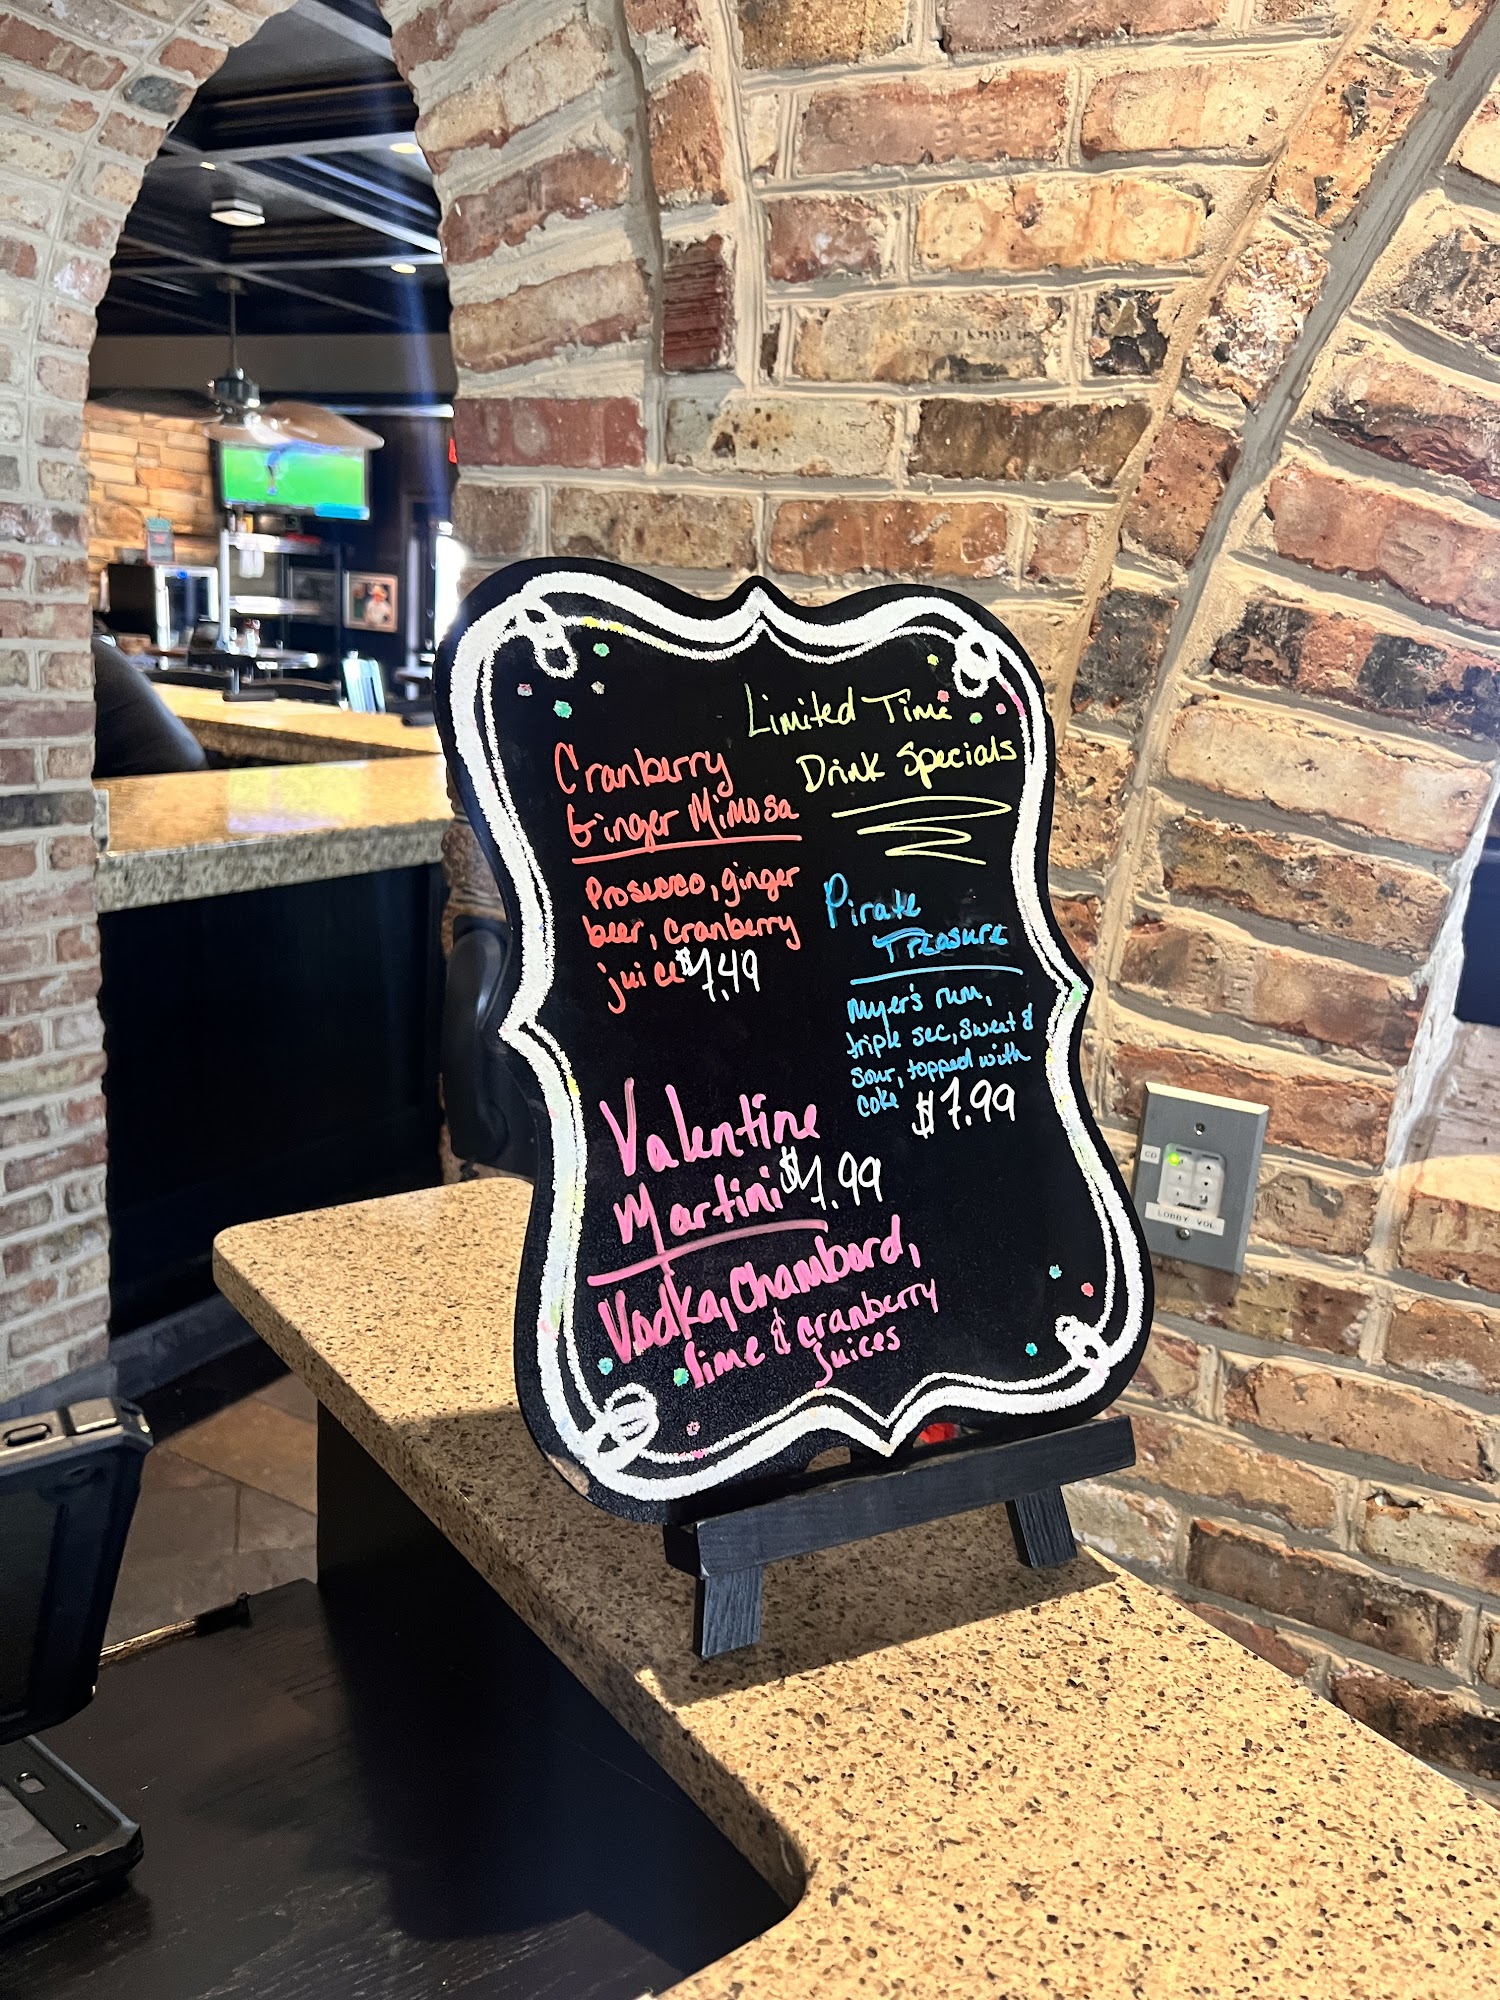 Limited Time
Drink Specials
Cranberry
Ginger Mimosa
Prosecco, ginger
beer, cranberry
juice $7.49
Pirate
Treasure
Myer's rum,
triple sec, sweet &
sour, topped with
coke $7.99
Valentine
Martini $7.99
Vodka, Chambord,
lime & cranberry
juices
CD
LOBBY VOL